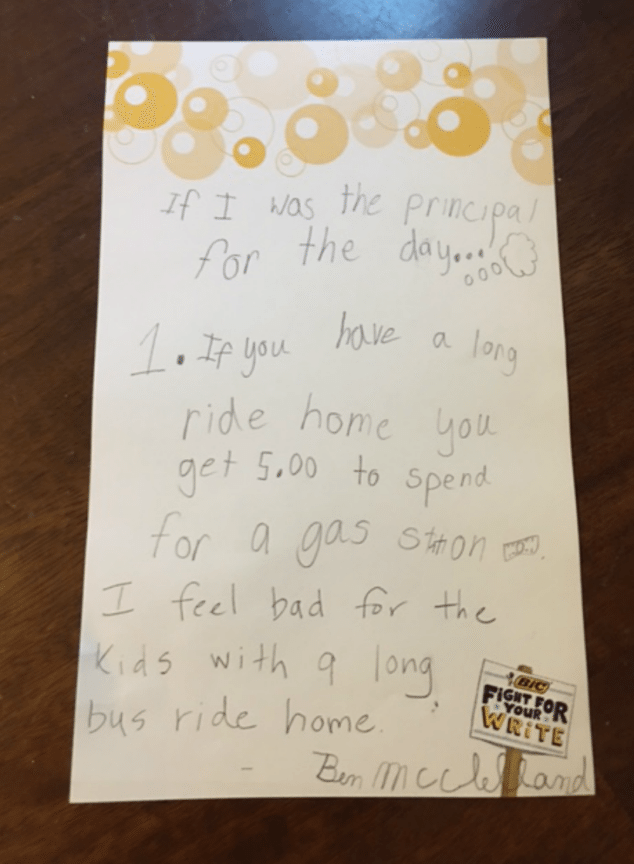 If I was the principal
for the day...
1. If you have a long
ride home you
get 5.00 to spend
for a gas
I feel bad for the
kids with a long
bus ride home.
BIC
FIGHT FOR
YOUR
WRITE
- Ben McClelland